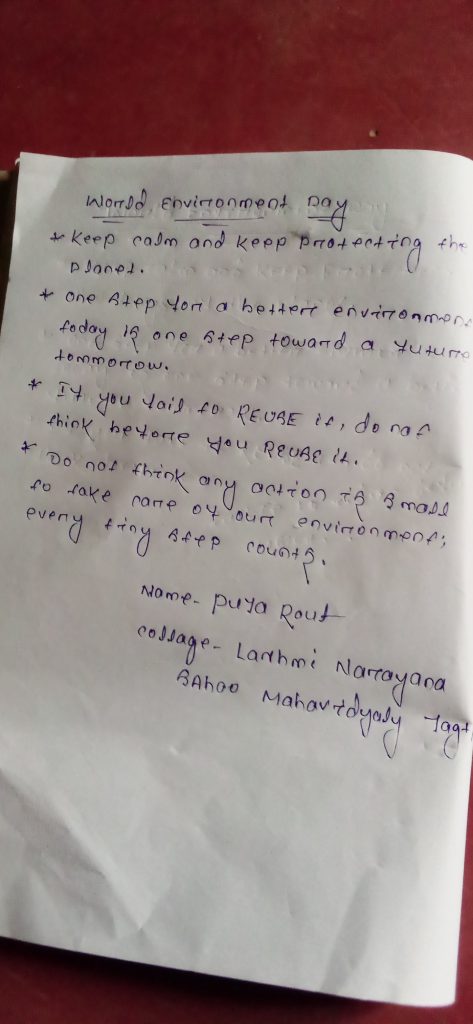 World Environment Day
* Keep calm and keep protecting the
planet.
* one step for a better environment
today is one step toward a future
tommorrow.
* If you fail to REUSE it, do not
think before you REUSE it.
* Do not think any action is small
to take care of our environment;
every tiny step counts.
Name- Puja Rout
collage- Laxhmi Narayana
SAhoo Mahavidyaly Jagt